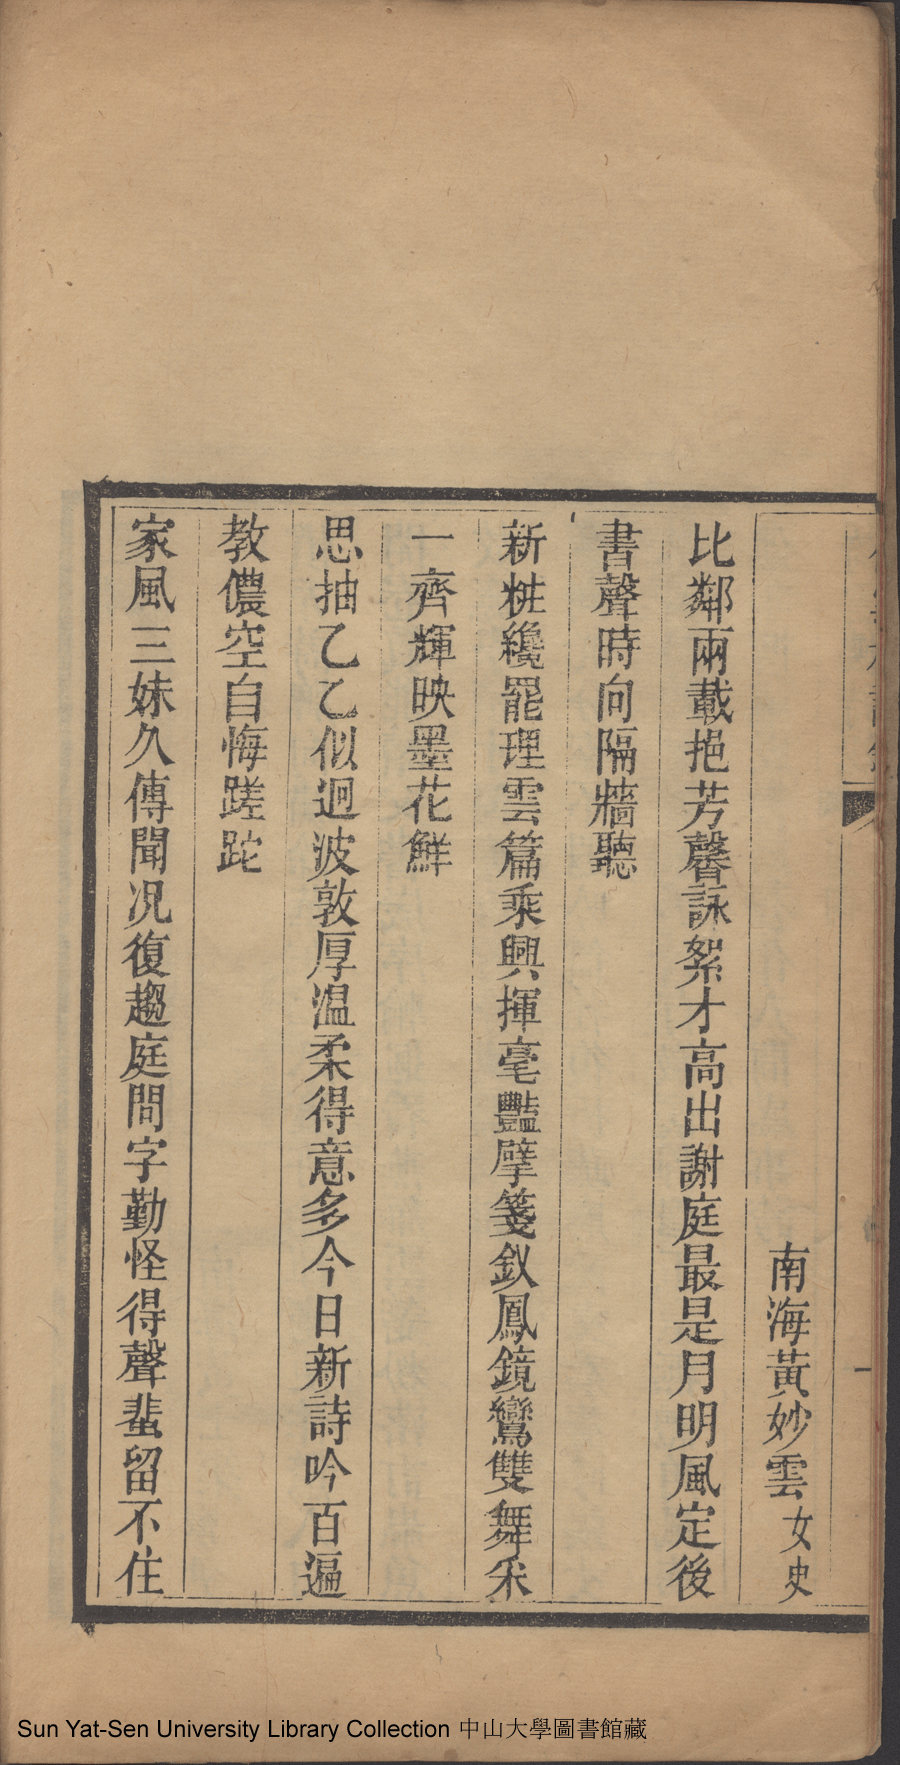 南海黃妙雲女史
比鄰兩載挹芳馨詠絮才高出謝庭最是月明風定後
書聲時向隔牆聽
新粧纔罷理雲篇乘興揮毫豔擘箋釵鳳鏡鸞雙舞采
一齊輝映墨花鮮
思抽乙乙似迴波敦厚温柔得意多今日新詩吟百遍
教儂空自悔蹉跎
家風三妹久傳聞况復趨庭問字勤怪得聲蜚留不住
Sun Yat-Sen University Library Collection 中山大學圖書館藏